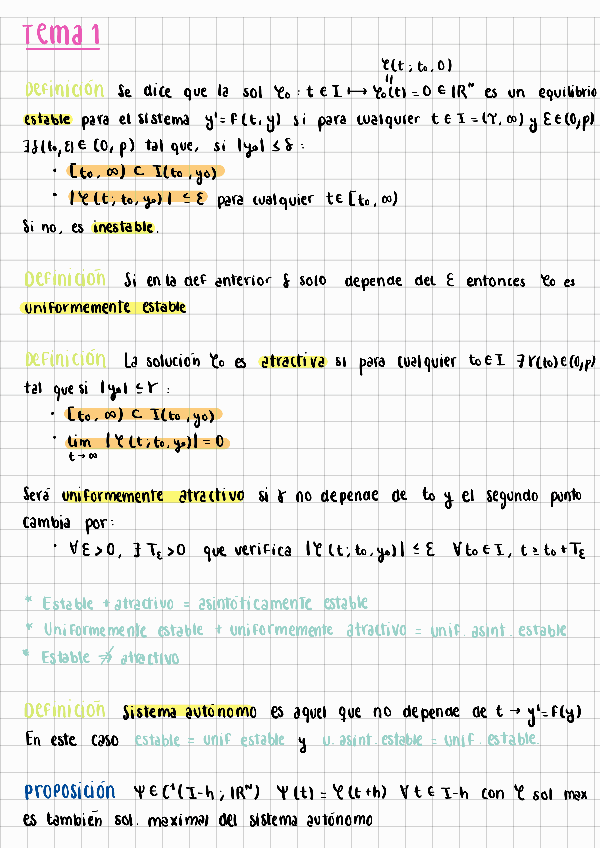 Tema 1
φ(t; t₀, 0)
Definición Se dice que la sol φ₀ : t ∈ I ⟼ φ₀(t) = 0 ∈ ℝⁿ es un equilibrio
estable para el sistema y' = f(t, y) si para cualquier t ∈ I = (γ, ∞) y ε ∈ (0, ρ)
∃ δ(t₀, ε) ∈ (0, ρ) tal que, si |y₀| ≤ δ :
· [t₀, ∞) ⊂ I(t₀, y₀)
· |φ(t; t₀, y₀)| ≤ ε para cualquier t ∈ [t₀, ∞)
Si no, es inestable.
Definición Si en la def anterior δ solo depende del ε entonces φ₀ es
uniformemente estable
Definición La solución φ₀ es atractiva si para cualquier t₀ ∈ I ∃ r(t₀) ∈ (0, ρ)
tal que si |y₀| ≤ r :
· [t₀, ∞) ⊂ I(t₀, y₀)
· lim |φ(t; t₀, y₀)| = 0
t → ∞
Será uniformemente atractivo si r no depende de t₀ y el segundo punto
cambia por:
· ∀ ε > 0, ∃ Tε > 0 que verifica |φ(t; t₀, y₀)| ≤ ε ∀ t₀ ∈ I, t ≥ t₀ + Tε
* Estable + atractivo = asintóticamente estable
* Uniformemente estable + uniformemente atractivo = unif. asint. estable
* Estable ⇏ atractivo
Definición Sistema autónomo es aquel que no depende de t → y' = f(y)
En este caso estable = unif estable y u. asint. estable = unif. estable.
Proposición Ψ ∈ C¹(I-h ; ℝⁿ) Ψ(t) = φ(t+h) ∀ t ∈ I-h con φ sol max
es también sol. maximal del sistema autónomo